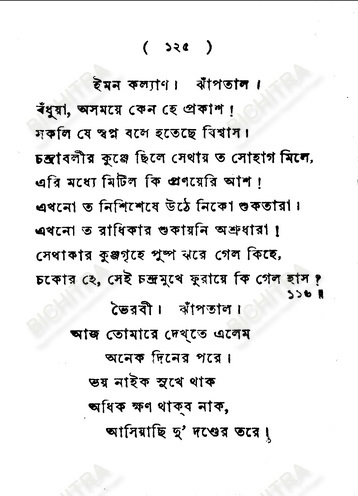 ( ১২৫ )
ইমন কল্যাণ। ঝাঁপতাল।
বঁধুয়া, অসময়ে কেন হে প্রকাশ!
সকলি যে স্বপ্ন বলে হতেছে বিশ্বাস।
চন্দ্রাবলীর কুঞ্জে ছিলে সেথায় ত সোহাগ মিলে,
এরি মধ্যে মিটিল কি প্রণয়েরি আশ!
এখনো ত নিশিশেষে উঠে নিকো শুকতারা।
এখনো ত রাধিকার শুকায়নি অশ্রুধারা!
সেথাকার কুঞ্জগৃহে পুষ্প ঝরে গেল কিহে,
চকোর হে, সেই চন্দ্রমুখে ফুরায়ে কি গেল হাস?
১১৬॥
ভৈরবী। ঝাঁপতাল।
আজ তোমারে দেখ্‌তে এলেম
অনেক দিনের পরে।
ভয় নাইক সুখে থাক
অধিক ক্ষণ থাক্‌ব নাক,
আসিয়াছি দু’ দণ্ডের তরে।
BICHITRA